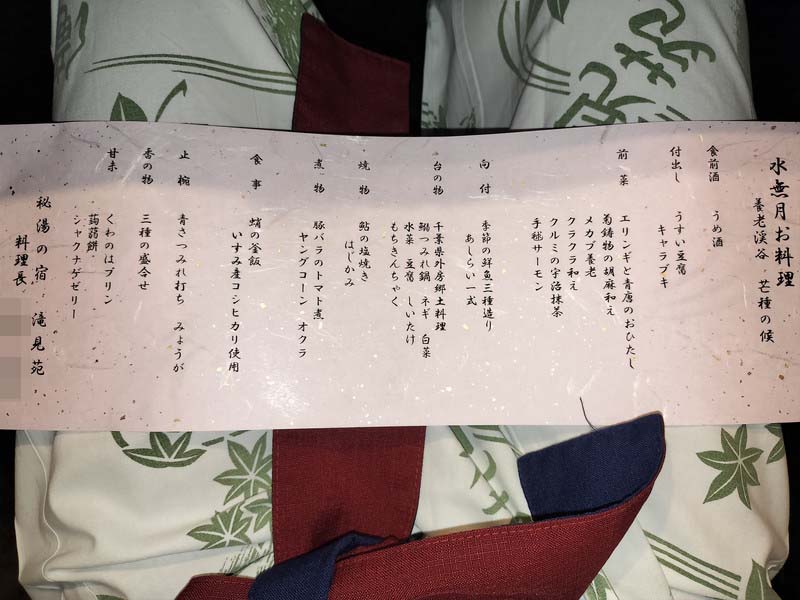 水無月お料理
養老渓谷 芒種の候
食前酒 うめ酒
付出し うすい豆腐
キャラブキ
前菜 エリンギと青唐のおひたし
菊鋳物の胡麻和え
メカブ養老
クラクラ和え
クルミの宇治抹茶
手毬サーモン
向付 季節の鮮魚三種造り
あしらい一式
台の物 千葉県外房郷土料理
鰯つみれ鍋 ネギ 白菜
水菜 豆腐 しいたけ
もちきんちゃく
焼物 鮎の塩焼き
はじかみ
煮物 豚バラのトマト煮
ヤングコーン オクラ
食事 蛸の釜飯
いすみ産コシヒカリ使用
止椀 青さつみれ打ち みょうが
香の物 三種の盛合せ
甘未 くわのはプリン
蒟蒻餅
シャクナゲゼリー
秘湯の宿 滝見苑
料理長